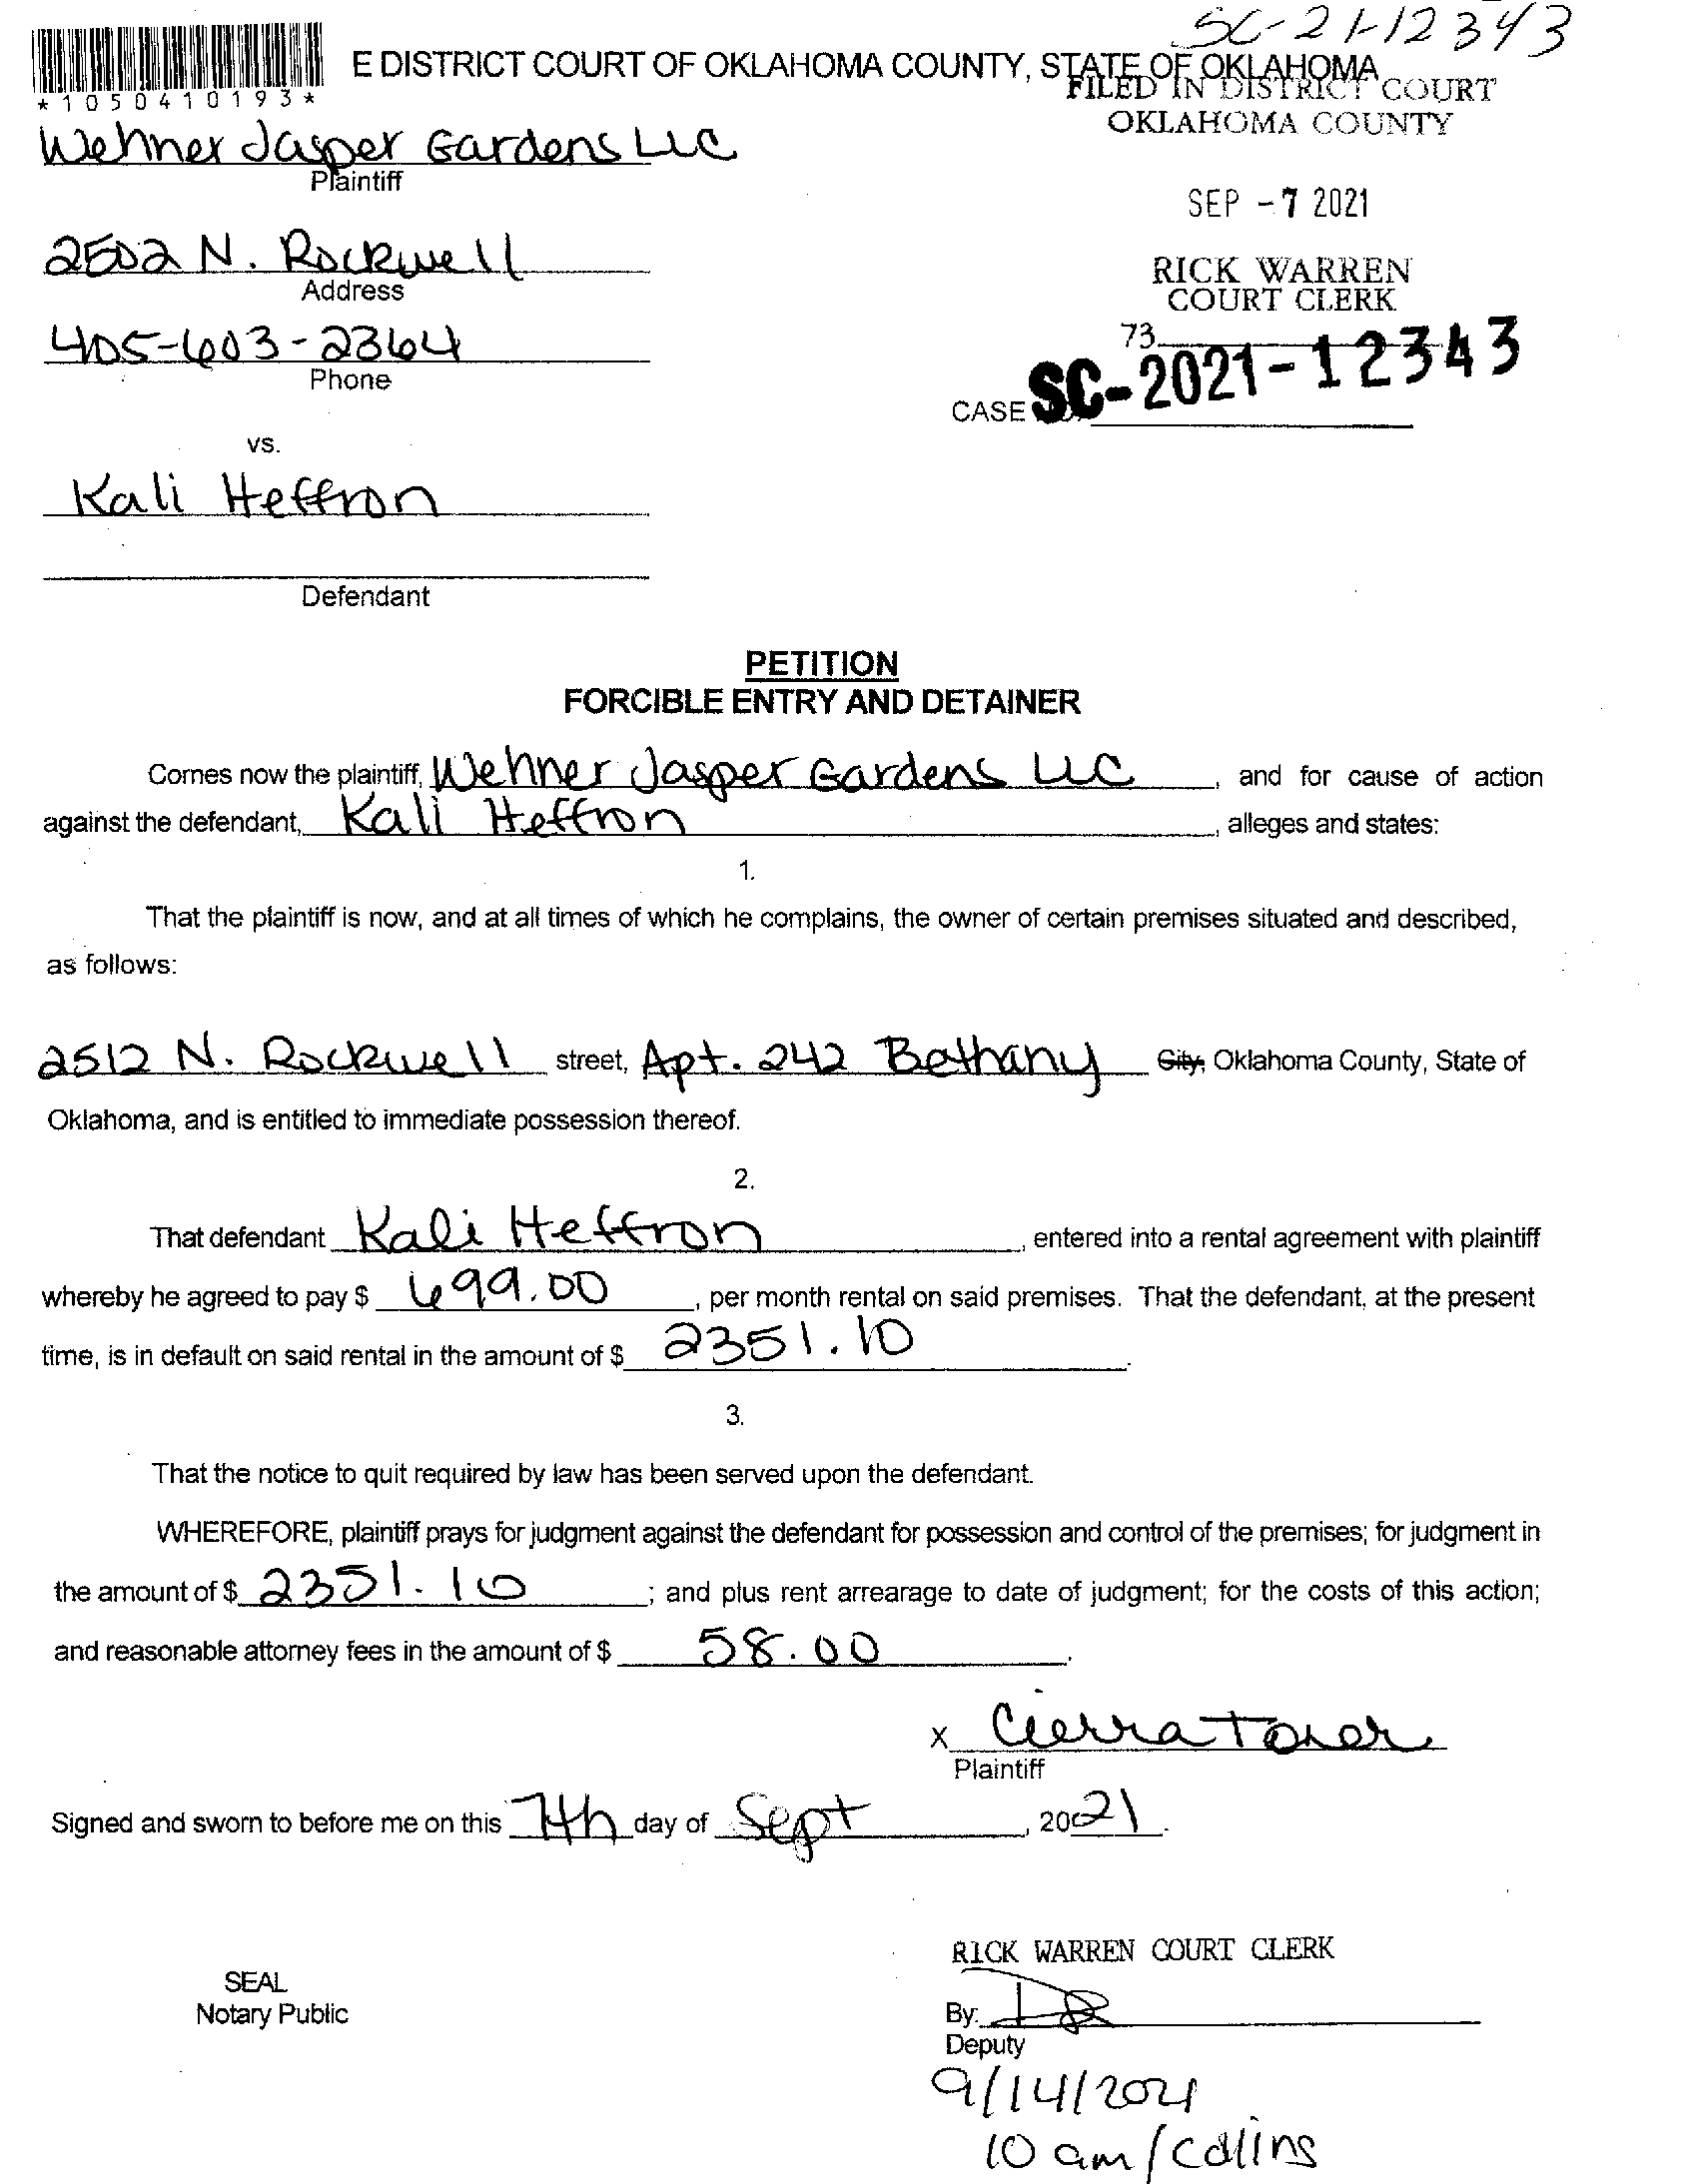 SC-21-12343
E DISTRICT COURT OF OKLAHOMA COUNTY, STATE OF OKLAHOMA
*1050410193*
FILED IN DISTRICT COURT
OKLAHOMA COUNTY
Wehner Jasper Gardens LLC
Plaintiff
SEP -7 2021
2502 N. Rockwell
Address
RICK WARREN
COURT CLERK
405-603-2364
Phone
73
CASE SC-2021-12343
vs.
Kali Heffron
Defendant
PETITION
FORCIBLE ENTRY AND DETAINER
Comes now the plaintiff, Wehner Jasper Gardens LLC, and for cause of action
against the defendant, Kali Heffron, alleges and states:
1.
That the plaintiff is now, and at all times of which he complains, the owner of certain premises situated and described,
as follows:
2512 N. Rockwell street, Apt. 242 Bethany City, Oklahoma County, State of
Oklahoma, and is entitled to immediate possession thereof.
2.
That defendant Kali Heffron, entered into a rental agreement with plaintiff
whereby he agreed to pay $ 699.00, per month rental on said premises. That the defendant, at the present
time, is in default on said rental in the amount of $ 2351.10.
3.
That the notice to quit required by law has been served upon the defendant.
WHEREFORE, plaintiff prays for judgment against the defendant for possession and control of the premises; for judgment in
the amount of $ 2351.10; and plus rent arrearage to date of judgment; for the costs of this action;
and reasonable attorney fees in the amount of $ 58.00.
x Cierra
Plaintiff
Signed and sworn to before me on this 7th day of Sept, 20021.
RICK WARREN COURT CLERK
SEAL
Notary Public
By:
Deputy
9/14/2021
10 am/Collins